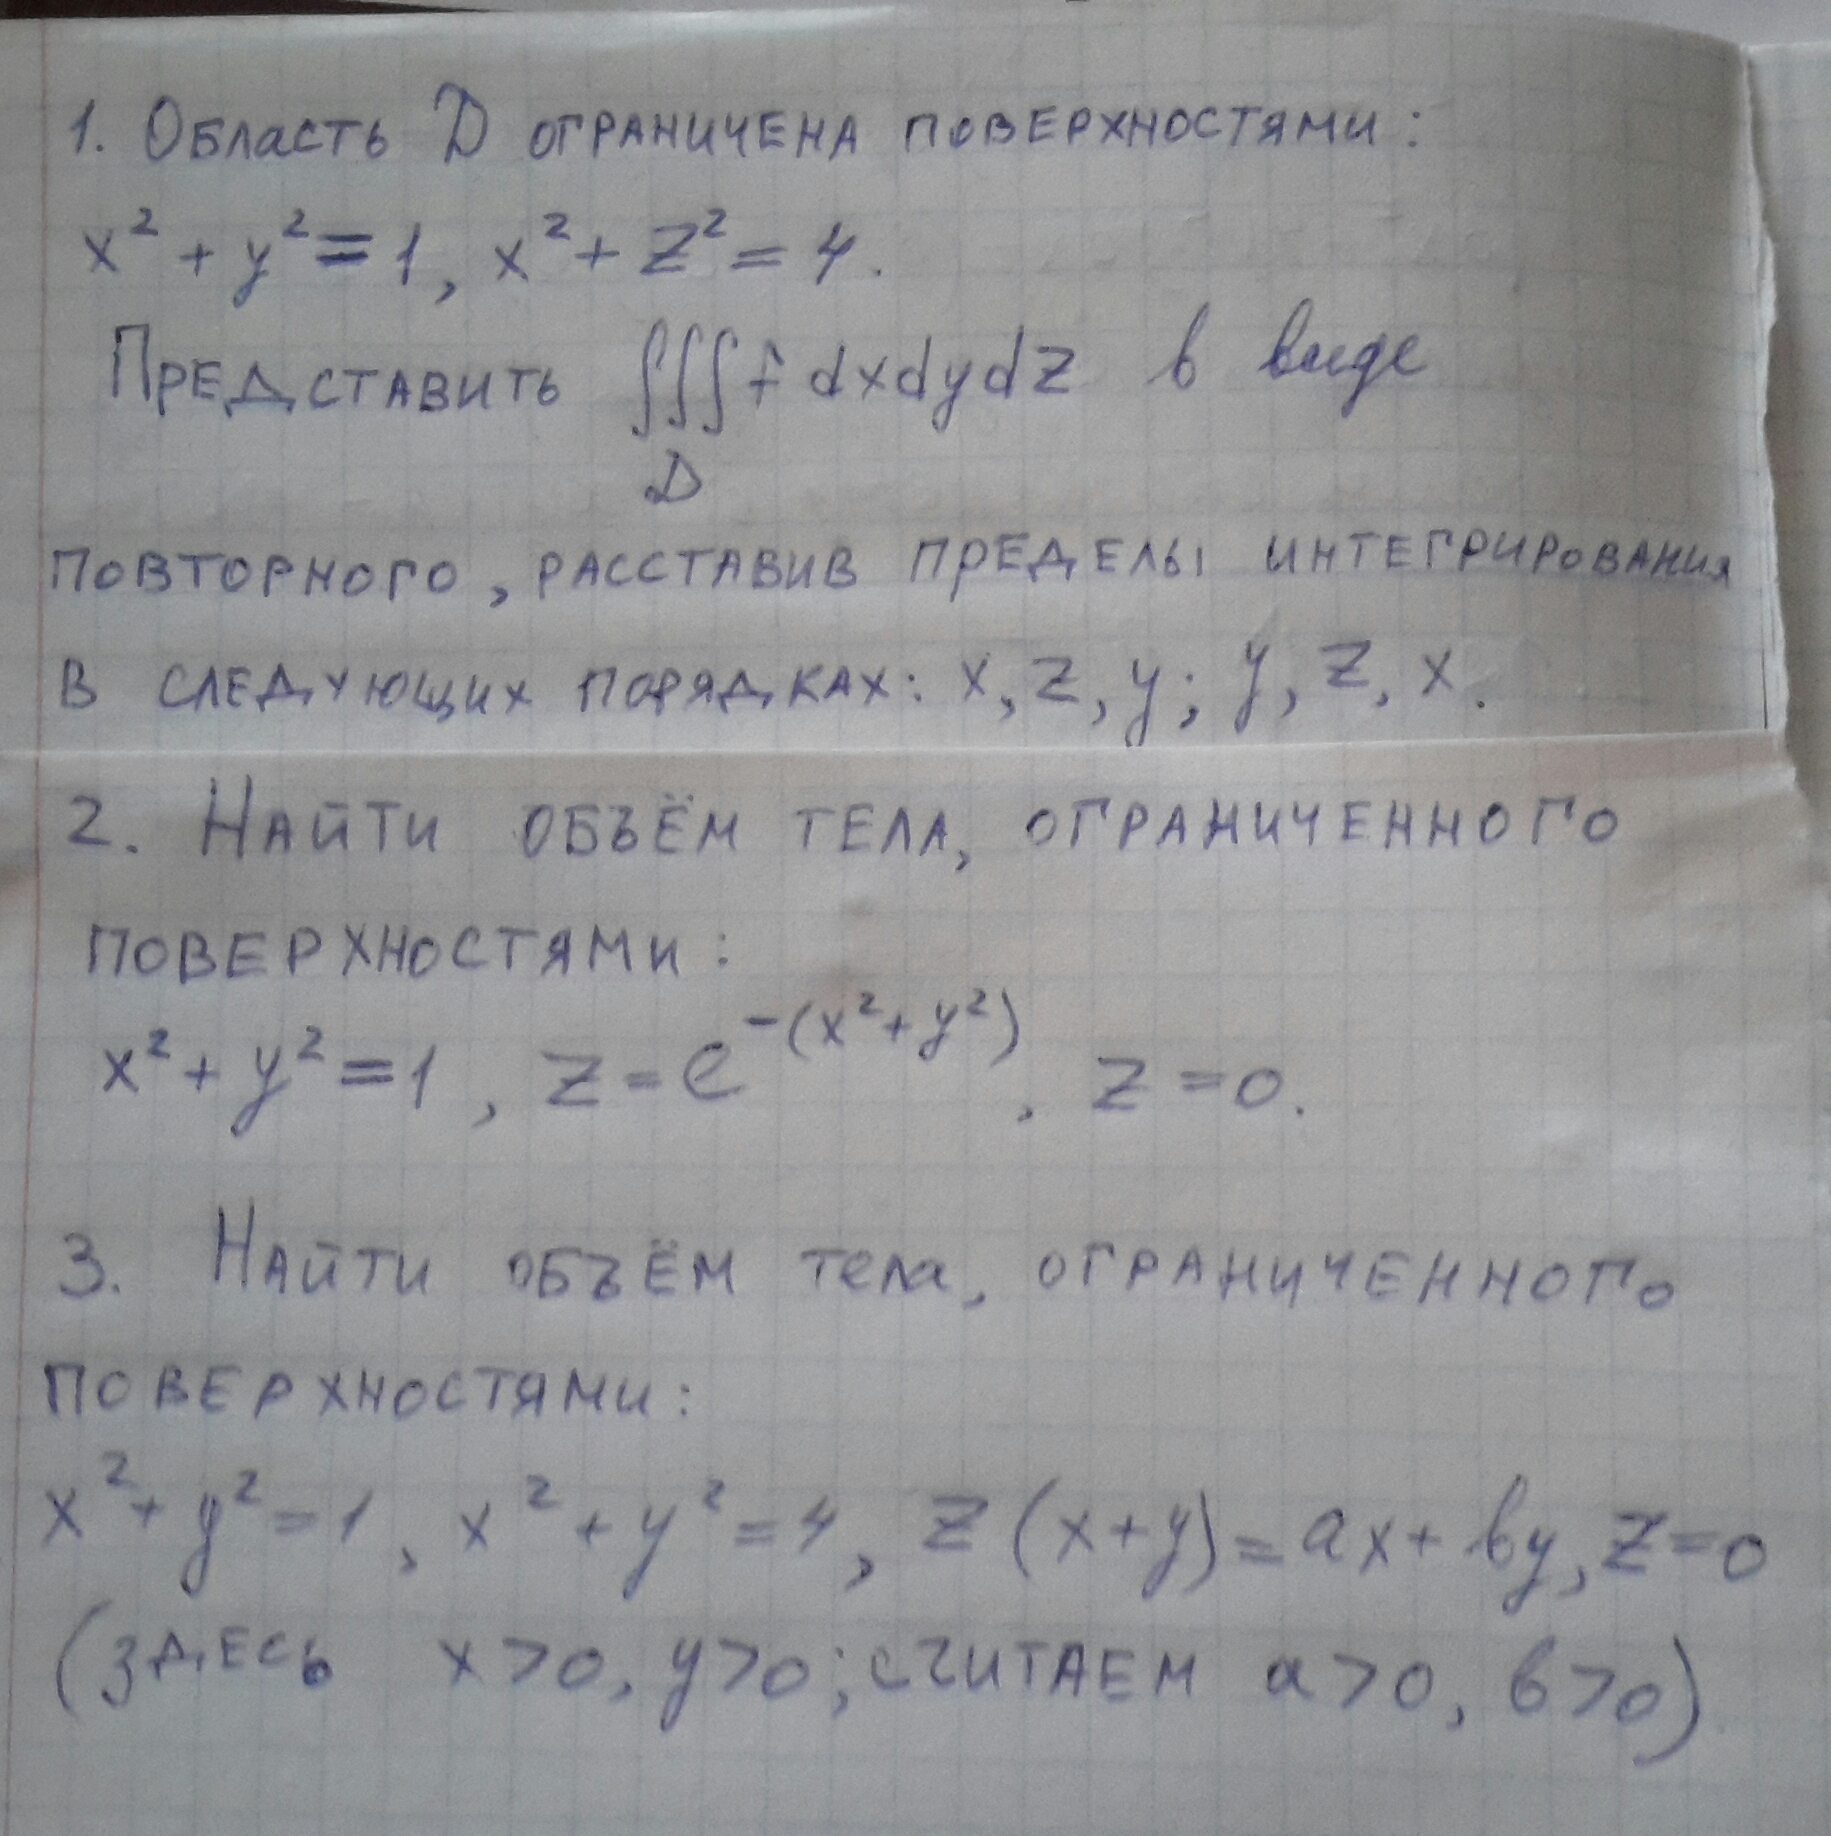 1. Область D ограничена поверхностями:
x² + y² = 1, x² + z² = 4.
Представить ∭ f dxdydz в виде
D
повторного, расставив пределы интегрирования
в следующих порядках: x, z, y; y, z, x.
2. Найти объём тела, ограниченного
поверхностями:
x² + y² = 1, z = e^{-(x² + y²)}, z = 0.
3. Найти объём тела, ограниченного
поверхностями:
x² + y² = 1, x² + y² = 4, z(x+y) = ax + by, z = 0
(здесь x > 0, y > 0; считаем a > 0, b > 0)